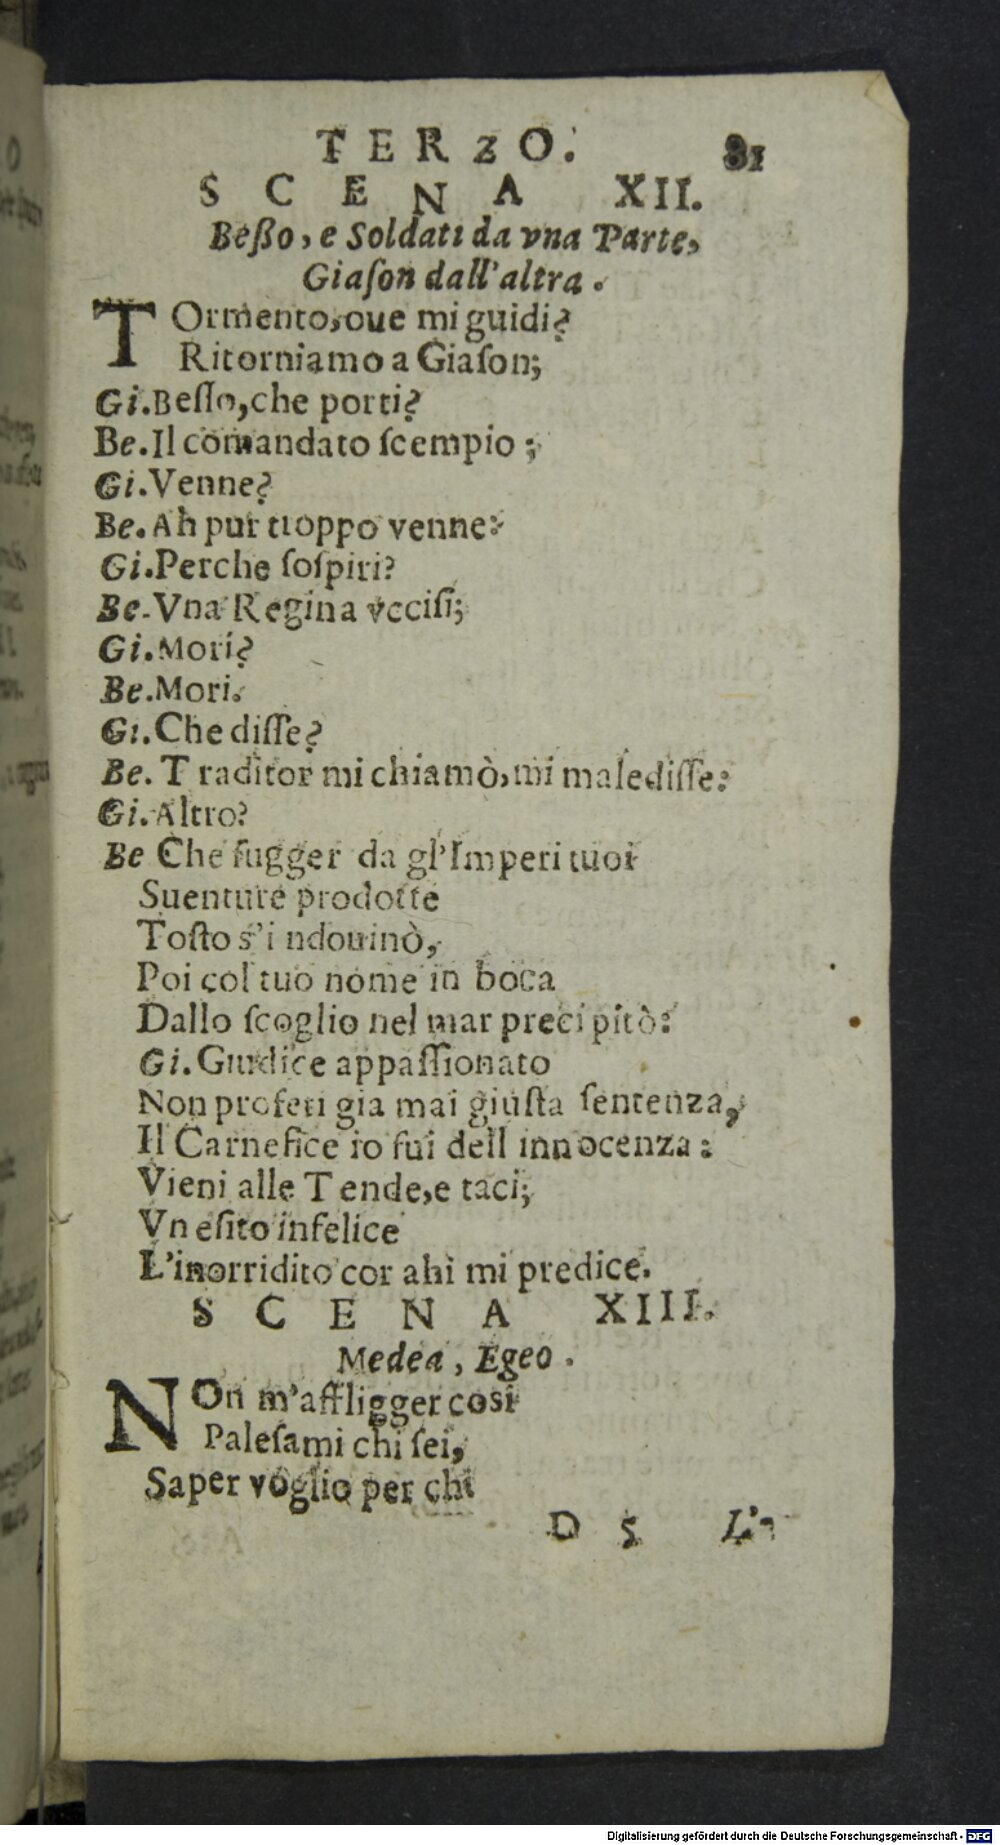 TERZO. 81
SCENA XII.
Beßo, e Soldati da vna Parte,
Giaſon dall'altra.
TOrmento, oue mi guidi?
Ritorniamo a Giaſon;
Gi. Beſſo, che porti?
Be. Il comandato ſcempio;
Gi. Venne?
Be. Ah pur troppo venne:
Gi. Perche ſoſpiri?
Be. Vna Regina vcciſi;
Gi. Mori?
Be. Mori.
Gi. Che diſſe?
Be. Traditor mi chiamò, mi malediſſe:
Gi. Altro?
Be Che fugger da gl'Imperi tuoi
Suenture prodotte
Toſto s'i ndouinò,
Poi col tuo nome in boca
Dallo ſcoglio nel mar preci pitò:
Gi. Giudice appaſſionato
Non proferi gia mai giuſta ſentenza,
Il Carnefice io fui dell innocenza:
Vieni alle Tende, e taci;
Vn eſito infelice
L'inorridito cor ahi mi predice.
SCENA XIII.
Medea, Egeo.
NOn m'affligger cosi
Paleſami chi ſei,
Saper voglio per chi
D 5 L'
Digitalisierung gefördert durch die Deutsche Forschungsgemeinschaft - DFG